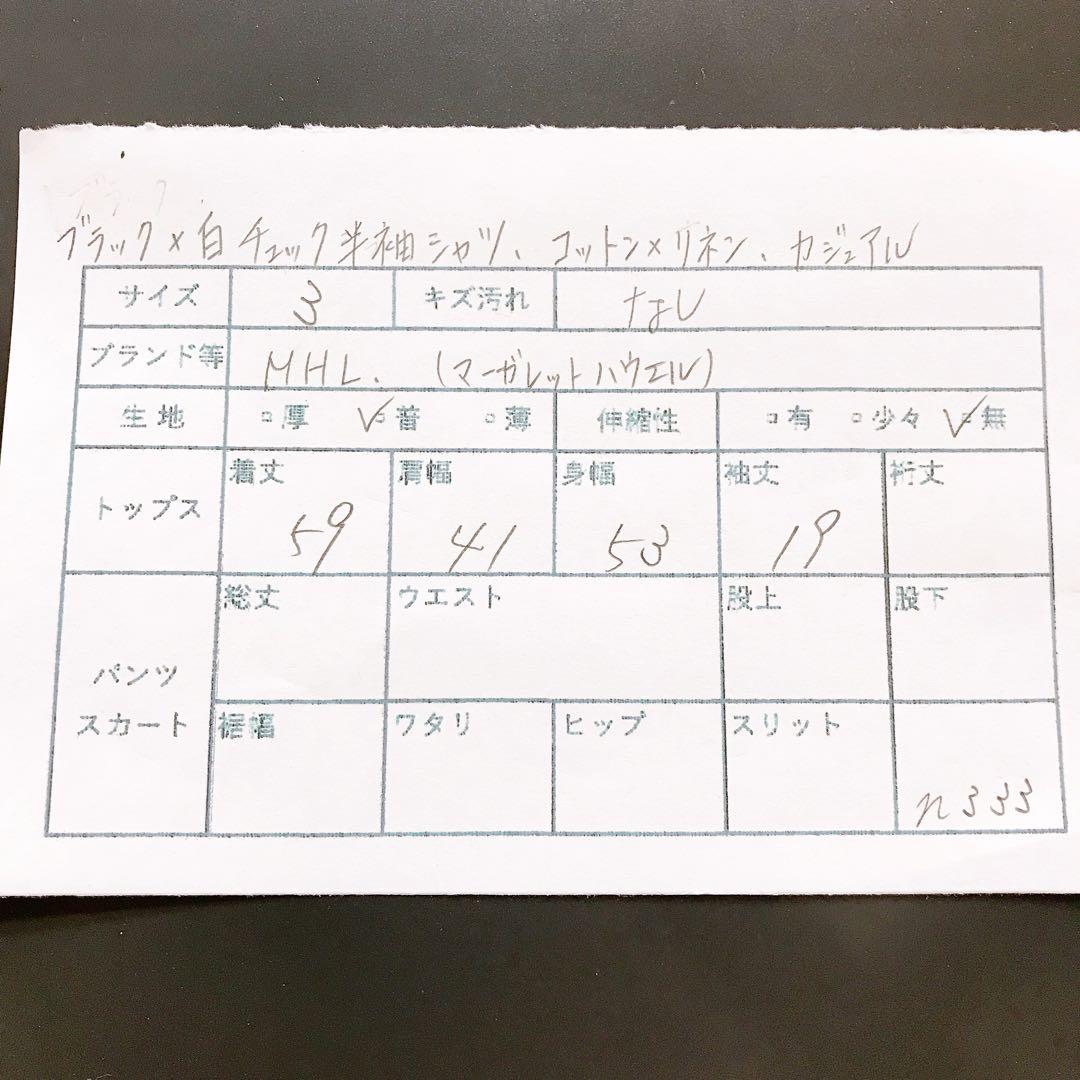 ブラック
ブラック×白 チェック半袖シャツ、コットン×リネン、カジュアル
サイズ 3 キズ汚れ なし
ブランド等 MHL. (マーガレットハウエル)
生地 □厚 ☑普 □薄 伸縮性 □有 □少々 ☑無
トップス 着丈 肩幅 身幅 袖丈 裄丈
59 41 53 19
パンツ
スカート
総丈 ウエスト 股上 股下
裾幅 ワタリ ヒップ スリット
n333